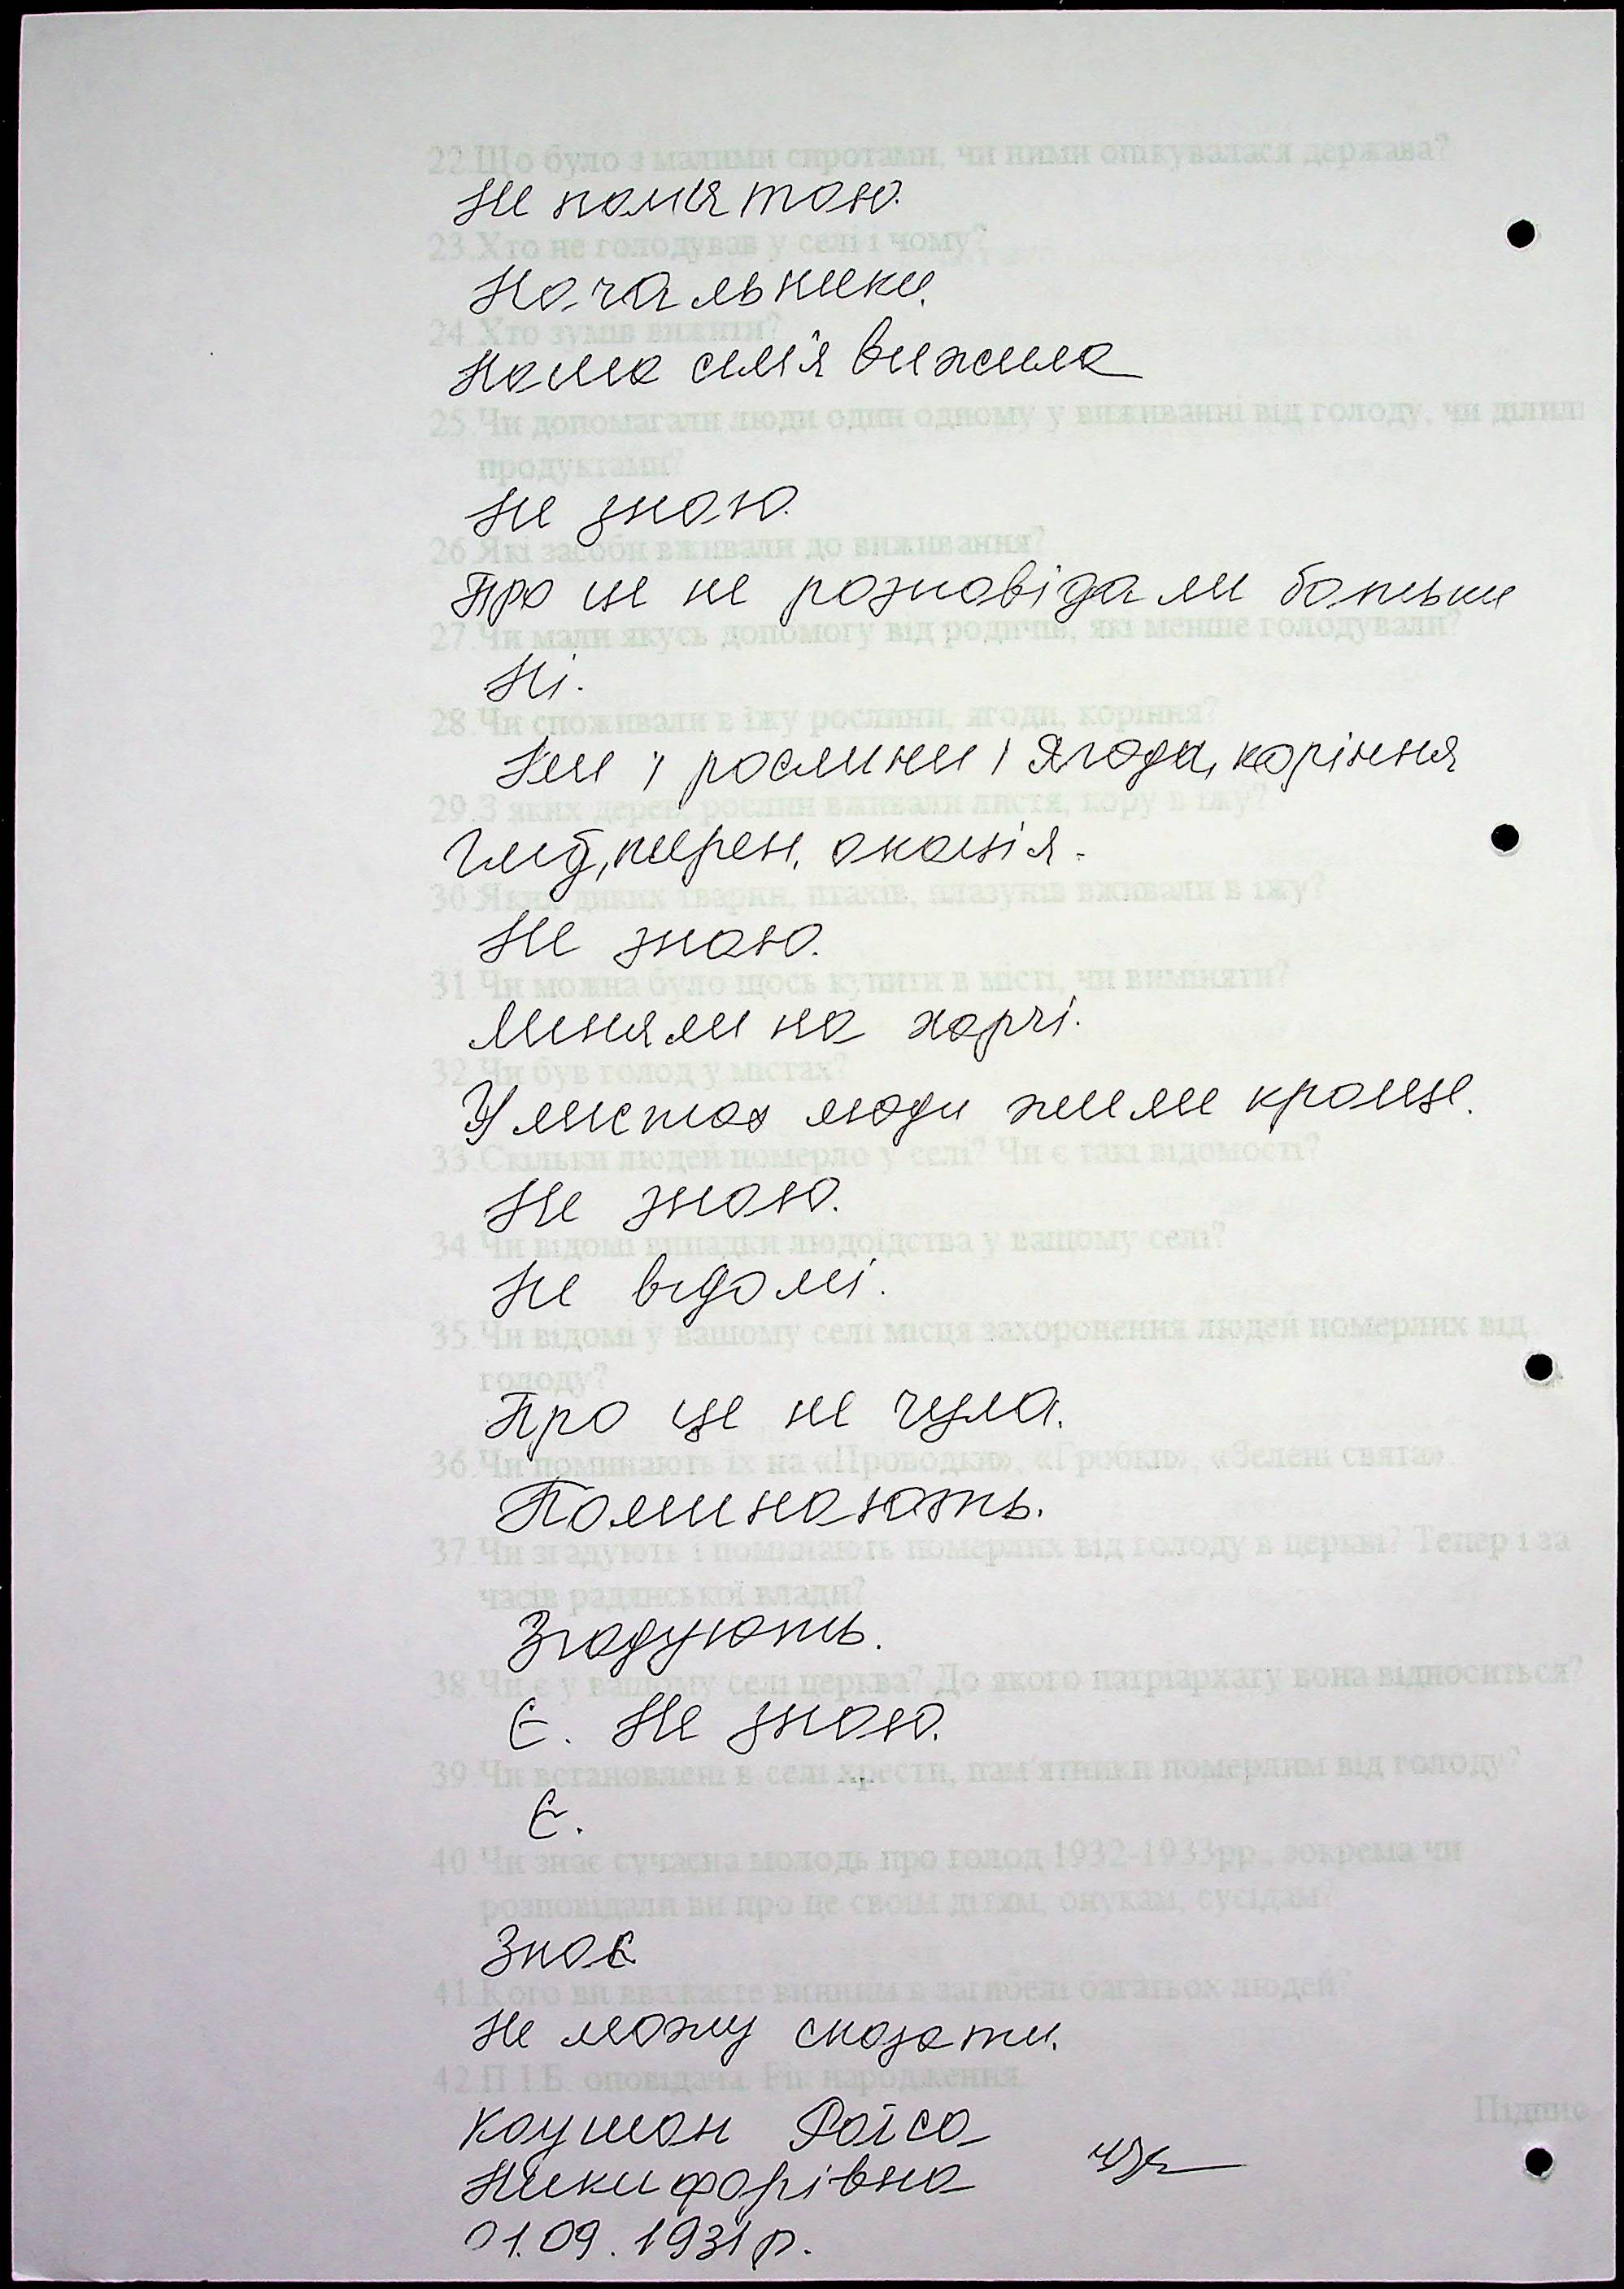 22.Що було з малими сиротами, чи ними опікувалася держава?
Не пам'ятаю.
23.Хто не голодував у селі і чому?
Начальники.
24.Хто зумів вижити?
Наша сім'я вижила
25.Чи допомагали люди один одному у виживанні від голоду, чи ділили
продуктами?
Не знаю.
26.Які засоби вживали до виживання?
Про це не розповідали батьки
27.Чи мали якусь допомогу від родичів, які менше голодували?
Ні.
28.Чи споживали в їжу рослини, ягоди, коріння?
Їли і рослини і ягоди, коріння
29.З яких дерев, рослин вживали листя, кору в їжу?
акація.
30.Яких диких тварин, птахів, плазунів вживали в їжу?
Не знаю.
31.Чи можна було щось купити в місті, чи виміняти?
Міняли на харчі.
32.Чи був голод у містах?
У містах люди жили краще.
33.Скільки людей померло у селі? Чи є такі відомості?
Не знаю.
34.Чи відомі випадки людоїдства у вашому селі?
Не відомі.
35.Чи відомі у вашому селі місця захоронення людей померлих від
голоду?
Про це не чула.
36.Чи поминають їх на «Проводки», «Гробки», «Зелені свята».
Поминають.
37.Чи згадують і поминають померлих від голоду в церкві? Тепер і за
часів радянської влади?
Згадують.
38.Чи є у вашому селі церква? До якого патріархату вона відноситься?
Є. Не знаю.
39.Чи встановлені в селі хрести, пам'ятники померлим від голоду?
Є.
40.Чи знає сучасна молодь про голод 1932-1933рр., зокрема чи
розповідали ви про це своїм дітям, онукам, сусідам?
Знає
41.Кого ви вважаєте винним в загибелі багатьох людей?
Не можу сказати.
42.П.І.Б. оповідача. Рік народження.
Підпис
Каушан Раїса
Никифорівна
01.09.1931р.